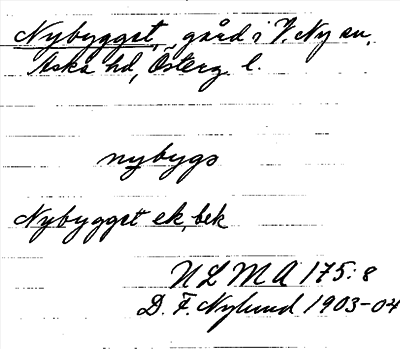 Nybygget, gård i V. Ny sn,
Aska hd, Österg. l.
nybygs
Nybygget ek, bek
NLMA 175:8
D. F. Nylund 1903-04